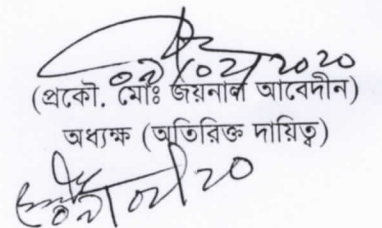 ০৯/০২/২০২০
(প্রকৌ. মোঃ জয়নাল আবেদীন)
অধ্যক্ষ (অতিরিক্ত দায়িত্ব)
০৯/০২/২০